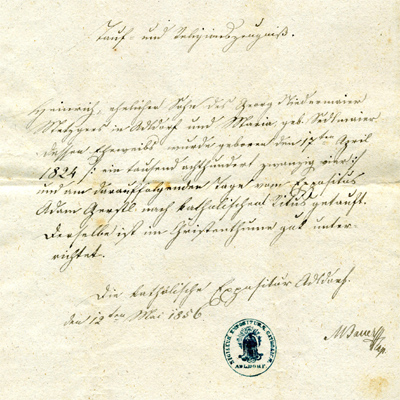 Tauf- und Religionszeugniß.
Heinrich, ehelicher Sohn des Georg Niedermaier
Metzgers in Adldorf und Maria, geb. Sedlmaier
dessen Eheweibs wurde geboren den 17ten April
1824 /: ein tausend achthundert zwanzig vier :/
und am darauffolgenden Tage vom Expositus
Adam Gerstl nach katholischem Ritus getauft.
Derselbe ist im Christenthume gut unter-
richtet.
Die katholische Expositur Adldorf.
den 12ten Mai 1856
ADLDORF